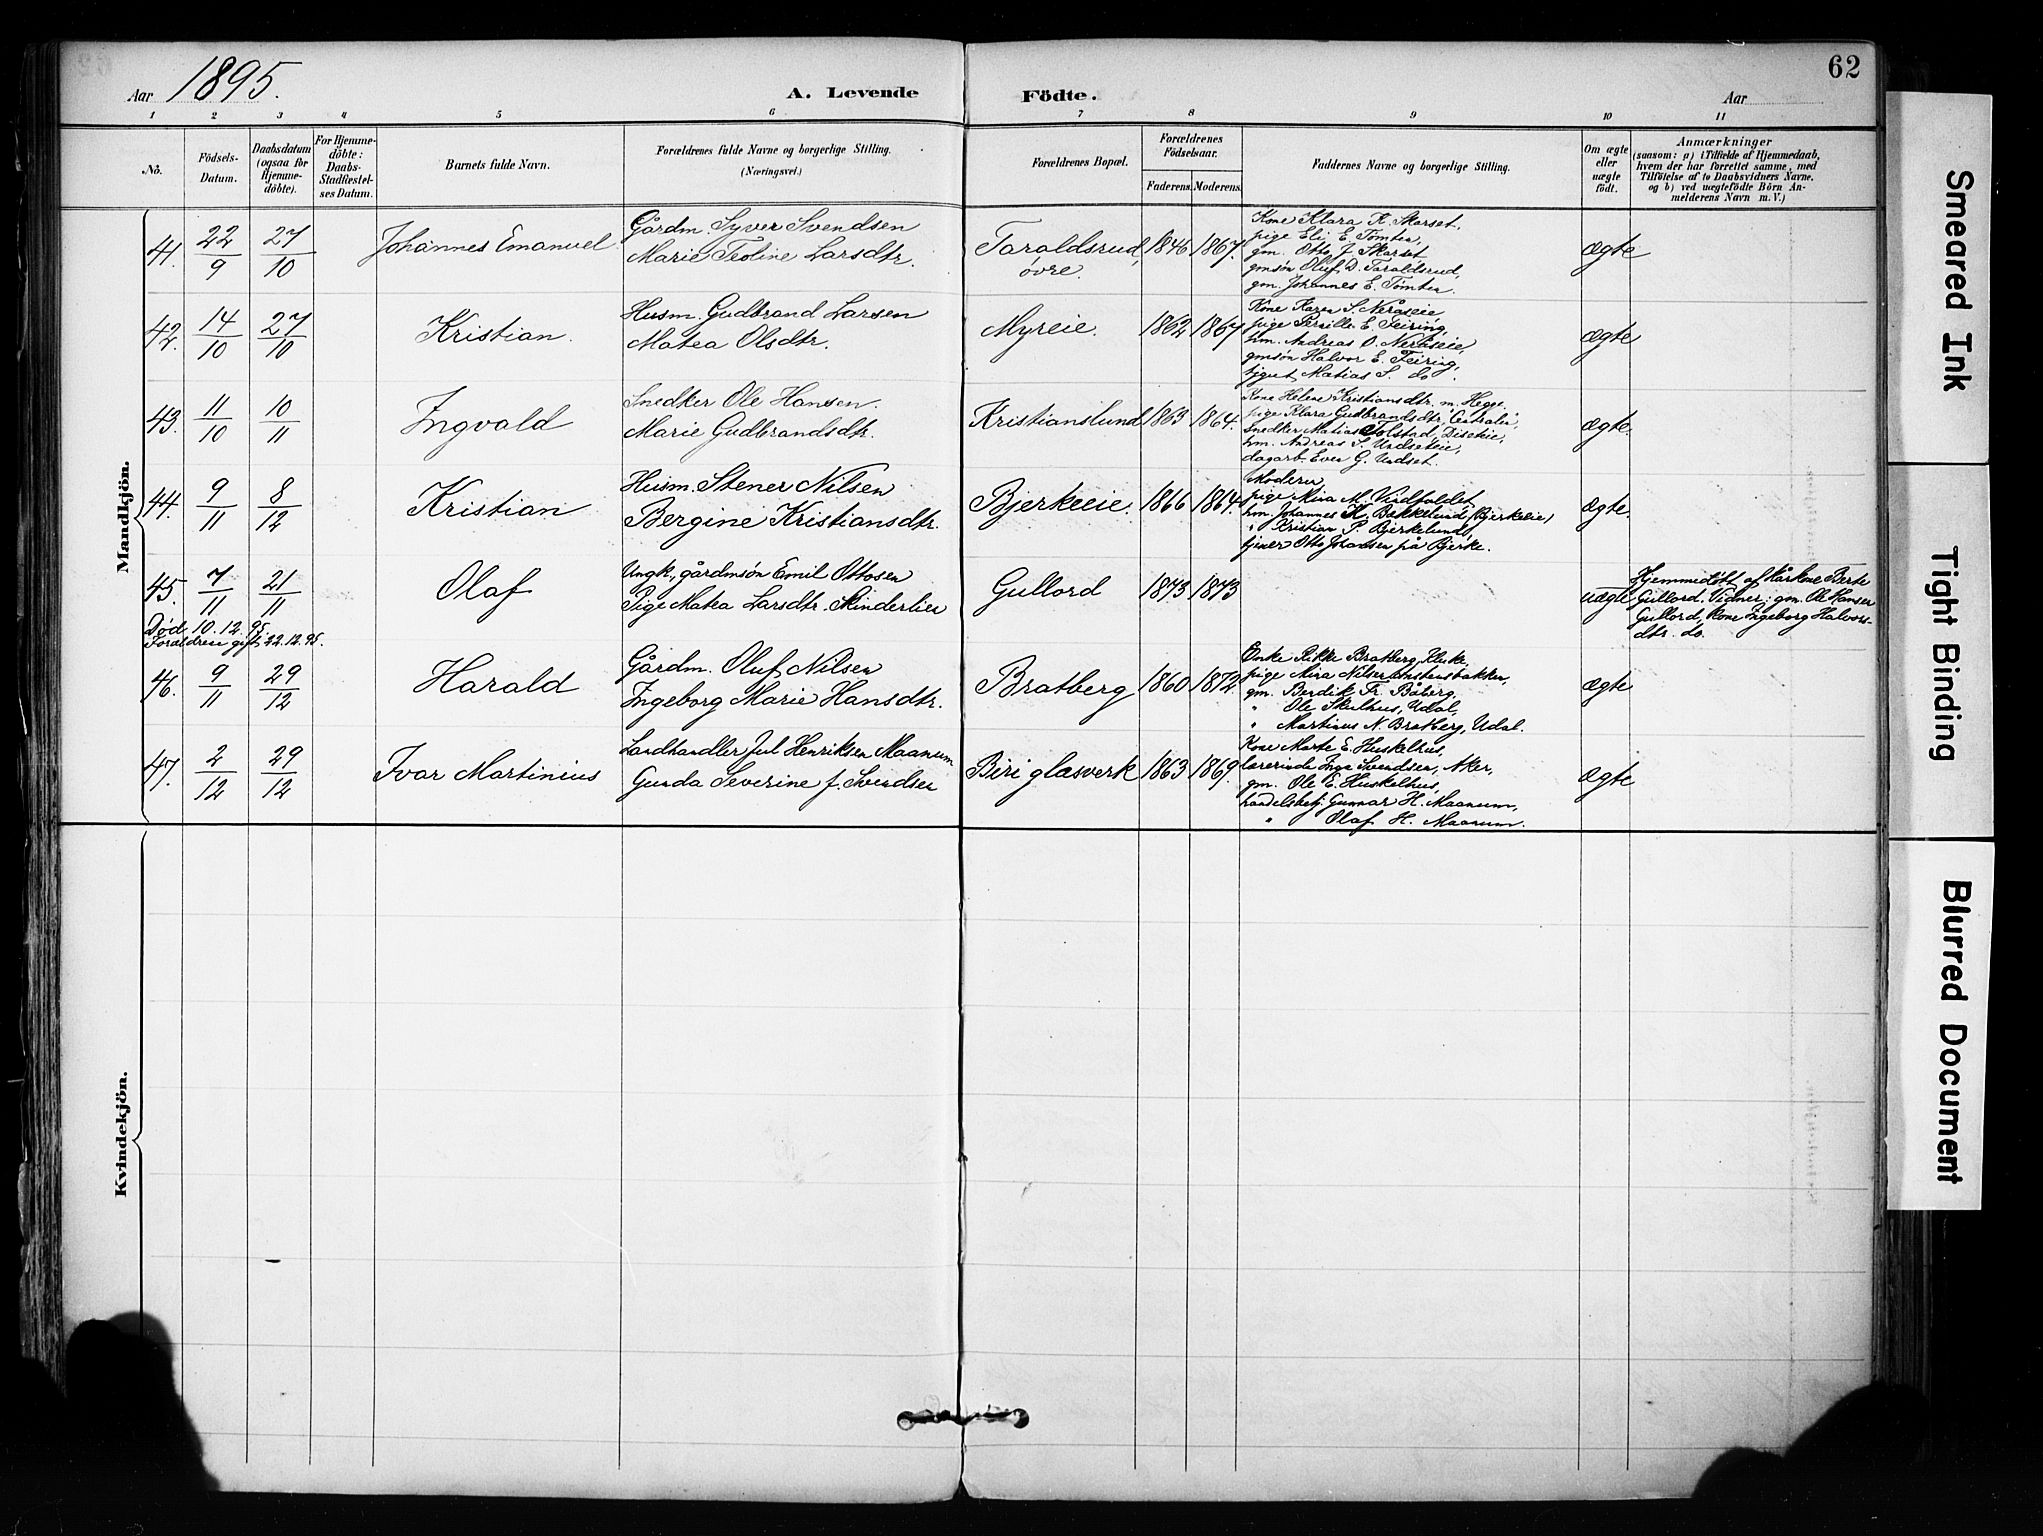 62
Aar 1895. A. Levende Födte. Aar
1 2 3 4 5 6 7 8 9 10 11
No. Födsels-Datum. Daabsdatum (ogsaa for Hjemme-döbte). For Hjemme-döbte: Daabs-Stadfæstel-ses Datum. Barnets fulde Navn. Forældrenes fulde Navne og borgerlige Stilling. (Næringsvei.) Forældrenes Bopæl. Forældrenes Födselsaar. Faderens. Moderens. Faddernes Navne og borgerlige Stilling. Om ægte eller uægte födt. Anmærkninger (saasom: a) i Tilfælde af Hjemmedaab, hvem der har forrettet samme, med Tilföielse af to Daabsvidners Navne, og b) ved uægtefödte Börn An-melderens Navn m. V.)
Mandkjön.
41. 22/9 27/10 Johannes Emanuel Gårdm. Syver Svendsen Taraldsrud, 1846 1867. Kone Klara K. Skarset, ægte
Marie Teoline Larsdtr. øvre. pige Eli E. Tømten,
gm. Otto J. Skarset
gmsøn Oluf D. Taraldsrud,
gm. Johannes E. Tømten.
42. 14/10 27/10 Kristian. Husm. Gudbrand Larsen Myreie. 1862 1867 Kone Karen S. Neråseie ægte
Matea Olsdtr. pige Pernille E. Feiring,
hm. Andreas O. Neråseie,
gmsøn Halvor E. Feiring,
Matias S. do.
43. 11/10 10/11 Ingvald Snedker Ole Hansen. Kristianslund 1863 1864. Kone Helene Kristiansdtr. m. Hegge. ægte.
Marie Gudbrandsdtr. pige Klara Gudbrandsdtr, "Centralen",
Snedker Matias Tolstad, Diseteie,
hm. Andreas S. Undseteie,
dagarb. Even G. Undset.
44. 9/11 8/12 Kristian Husm. Stener Nilsen Bjerkeeie. 1866 1864. Moderen ægte.
Bergine Kristiansdtr. pige Mina M. Vindfaldet,
hm. Johannes K. Bakkelund, (Bjerkeeie)
" Kristian P. Bjerkelund,
tjener Otto Johansen på Bjerke.
45. 7/11 21/11 Olaf Ungk., gårdmsøn Emil Ottosen Gullord 1873 1873 uægte Hjemmedøbt af Kårkone Berte
Pige Matea Larsdtr. Skinderlien Gullord. Vidner: gm. Ole Hansen
Gullord, Kone Ingeborg Halvors-
dtr. do.
Død 10.12.95.
Forældren gift 22.12.95.
46. 9/11 29/12 Harald Gårdm. Oluf Nilsen Bratberg 1860 1872. Enke Rikke Bratberg, Kluke, ægte
Ingeborg Marie Hansdtr. pige Mina Nilsen
gm. Berdik Fr. Båberg,
" Ole Skulhus, Udal,
" Martinus N. Bratberg, Udal.
47. 2/12 29/12 Ivar Martinius Landhandler Jul Henriksen Maanum Biri glasverk 1863 1869. Kone Marte E. Huskelhus, ægte
Gunda Severine f. Svendsen lærerinde Inga Svendsen, Aker,
gm. Ole E. Huskelhus,
handelsbetj. Gunnar H. Maanum,
" Olaf H. Maanum.
Kvindekjön.
Smeared Ink
Tight Binding
Blurred Document